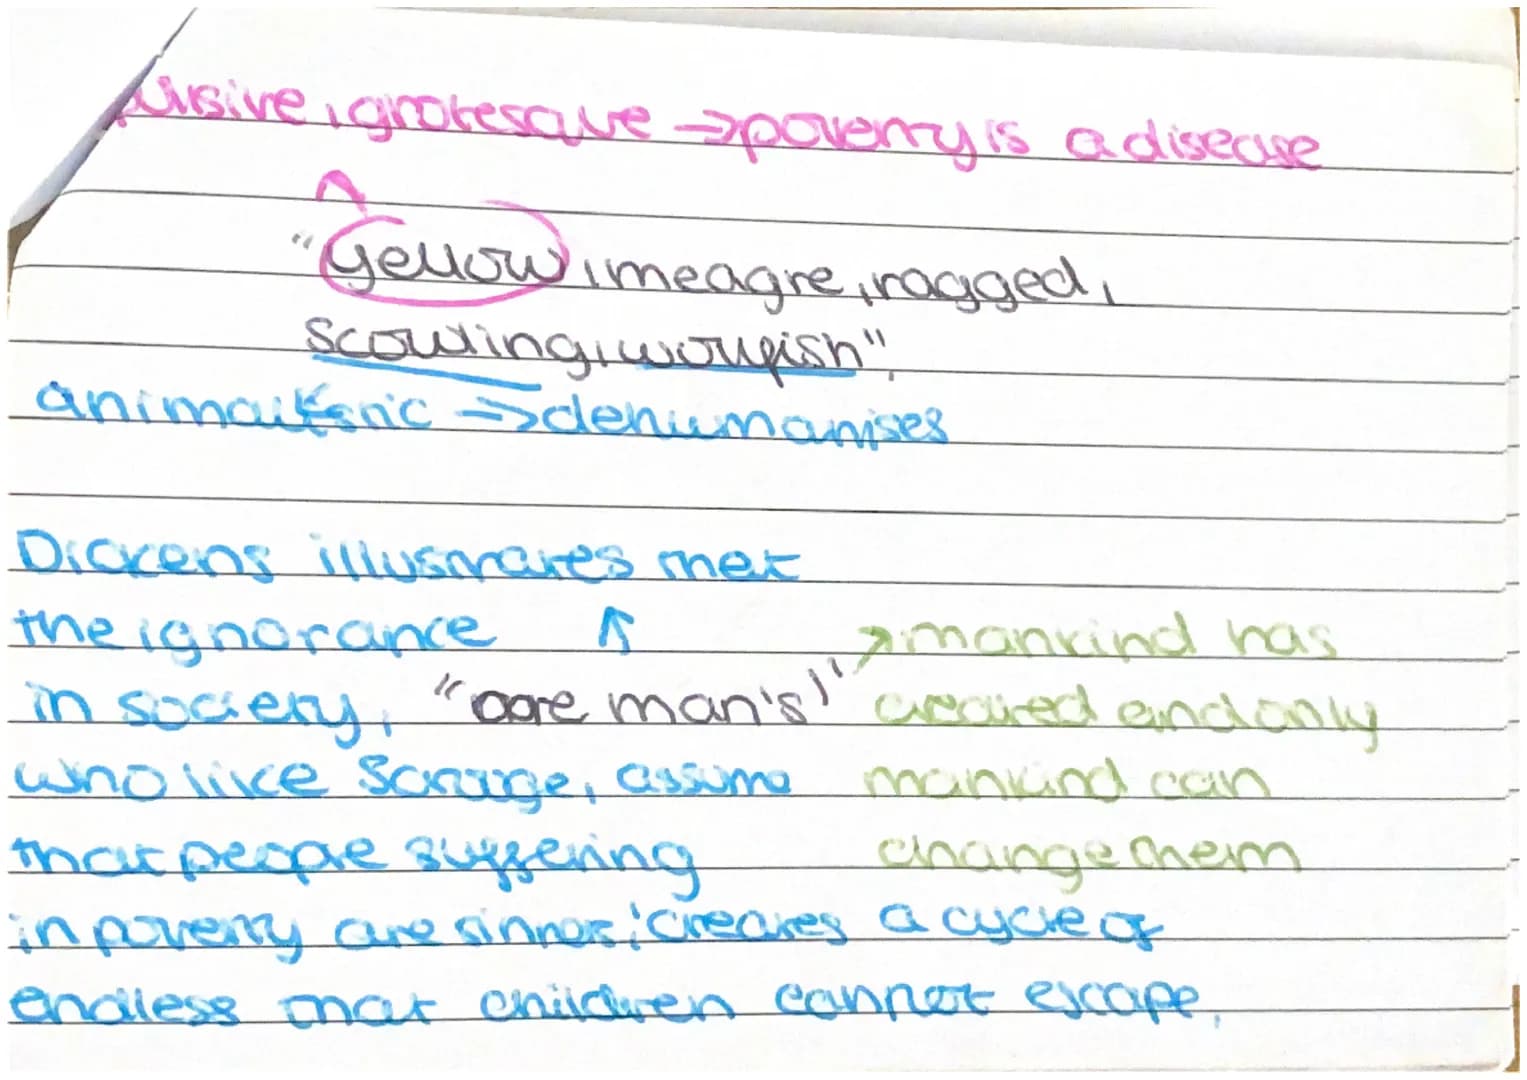 ulsive, grotesque → poverty is a disease
"yellow, meagre, ragged,
scowling, wolfish",
animalistic → dehumanises
Dickens illustrates that
the ignorance ↑
in society, "are man's"
who like Scrooge, assume
that people suffering
in poverty are sinner; creates a cycle of
endless that children cannot escape.
→ mankind has
created and only
mankind can
change them